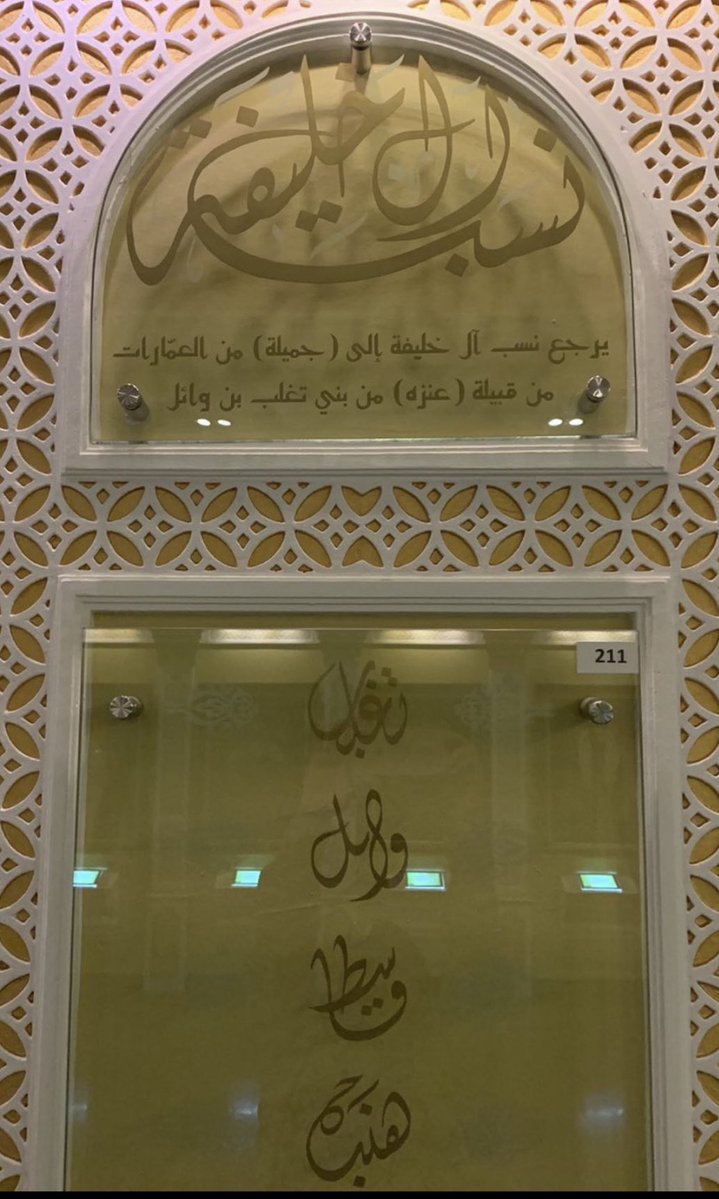 نسب آل خليفة
يرجع نسب آل خليفة إلى (جميلة) من العمّارات
من قبيلة (عنزه) من بني تغلب بن وائل
211
تغلب
وائل
قاسط
هنب